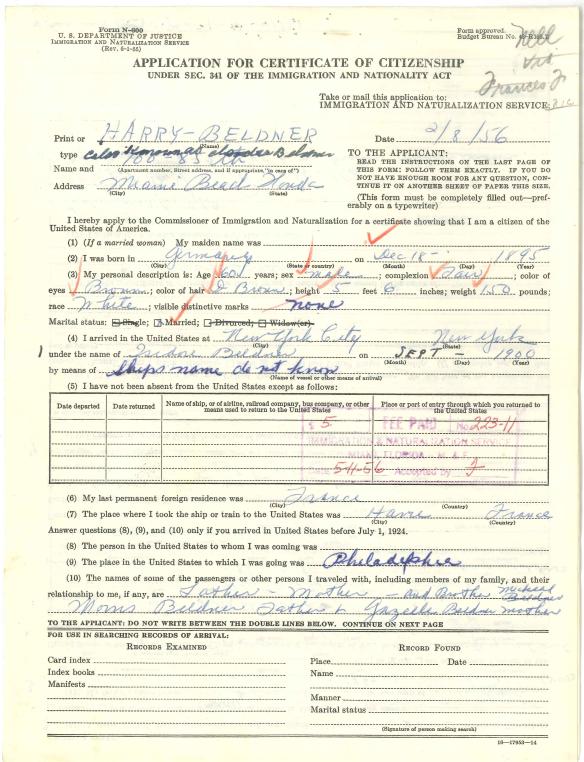 Form N-600
U. S. DEPARTMENT OF JUSTICE
IMMIGRATION AND NATURALIZATION SERVICE
(Rev. 6-1-55)
Form approved.
Budget Bureau No.
Nell
Frances
APPLICATION FOR CERTIFICATE OF CITIZENSHIP
UNDER SEC. 341 OF THE IMMIGRATION AND NATIONALITY ACT
Take or mail this application to:
IMMIGRATION AND NATURALIZATION SERVICE,
Print or HARRY - BELDNER Date 2/8/56
(Name)
type also known as Beldner
TO THE APPLICANT:
Name and (Apartment number, Street address, and if appropriate, "in care of")
READ THE INSTRUCTIONS ON THE LAST PAGE OF THIS FORM: FOLLOW THEM EXACTLY. IF YOU DO NOT HAVE ENOUGH ROOM FOR ANY QUESTION, CONTINUE IT ON ANOTHER SHEET OF PAPER THIS SIZE.
Address Miami Beach Florida
(City) (State)
(This form must be completely filled out—preferably on a typewriter)
I hereby apply to the Commissioner of Immigration and Naturalization for a certificate showing that I am a citizen of the
United States of America.
(1) (If a married woman) My maiden name was
(2) I was born in Germany on Dec 18 - 1895
(City) (State or country) (Month) (Day) (Year)
(3) My personal description is: Age 60 years; sex male; complexion Fair; color of
eyes Brown; color of hair D Brown; height 5 feet 6 inches; weight 150 pounds;
race White; visible distinctive marks none
Marital status: Single; Married; Divorced; Widow(er).
(4) I arrived in the United States at New York City New York
(City) (State)
under the name of Isidore Beldner on SEPT - 1900
(Month) (Day) (Year)
by means of Ships name do not know
(Name of vessel or other means of arrival)
(5) I have not been absent from the United States except as follows:
Date departed Date returned Name of ship, or of airline, railroad company, bus company, or other means used to return to the United States Place or port of entry through which you returned to the United States
$ 5. FEE PAID No 223-11
IMMIGRATION & NATURALIZATION SERVICE
MIAMI, FLORIDA
Date 5-11-56 Accepted by
(6) My last permanent foreign residence was France
(City) (Country)
(7) The place where I took the ship or train to the United States was Havre France
(City) (Country)
Answer questions (8), (9), and (10) only if you arrived in United States before July 1, 1924.
(8) The person in the United States to whom I was coming was
(9) The place in the United States to which I was going was Philadelphia
(10) The names of some of the passengers or other persons I traveled with, including members of my family, and their
relationship to me, if any, are Father - Mother - and Brother Beldner
Morris Beldner Father + Beldner mother
TO THE APPLICANT: DO NOT WRITE BETWEEN THE DOUBLE LINES BELOW. CONTINUE ON NEXT PAGE
FOR USE IN SEARCHING RECORDS OF ARRIVAL:
RECORDS EXAMINED
RECORD FOUND
Card index
Place Date
Index books
Name
Manifests
Manner
Marital status
(Signature of person making search)
16—17953-14